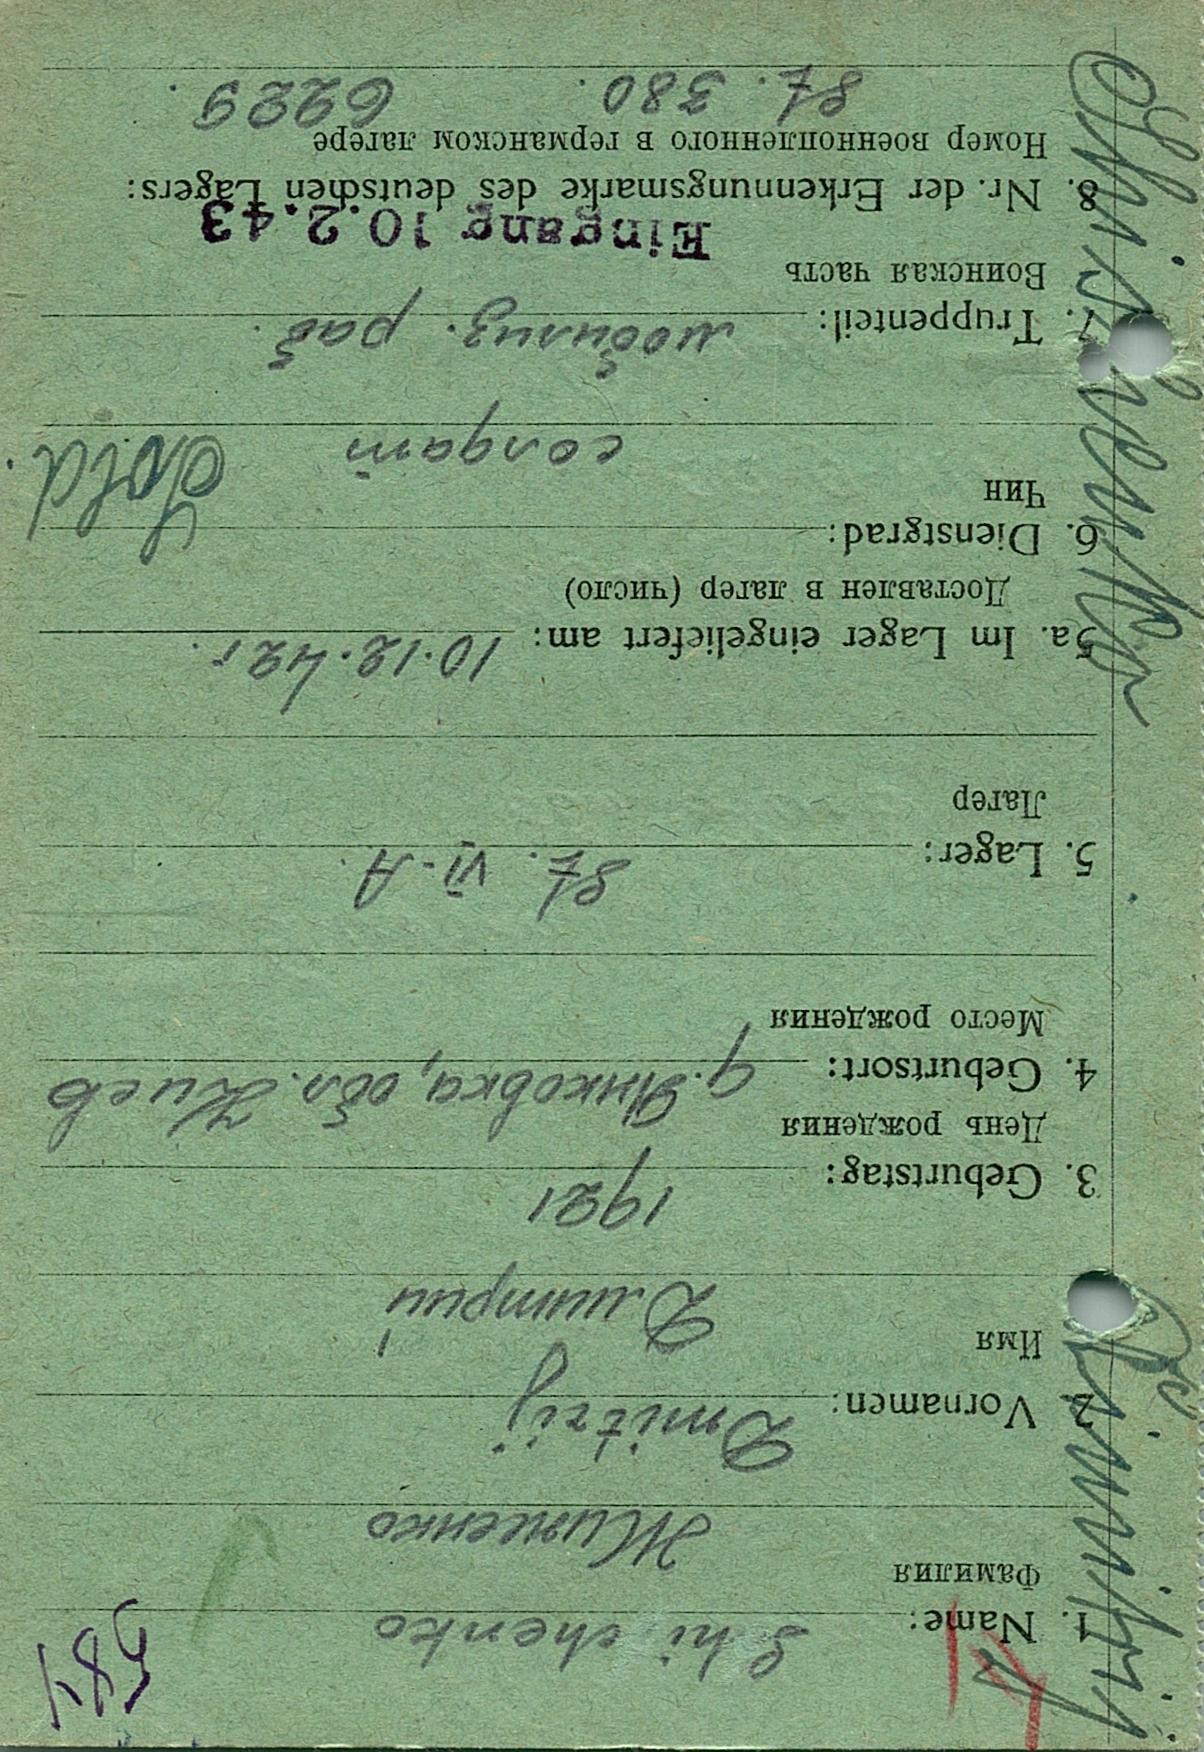 584
14
1. Name: Shi chenko
Фамилия
Жиженко
2. Vornamen: Dmitrij
Имя
Дмитрий
3. Geburtstag: 1921
День рождения
4. Geburtsort: д. Янковка, обл. Киев
Место рождения
5. Lager: St. VI-A.
Лагер
5a. Im Lager eingeliefert am: 10.12.42 г.
Доставлен в лагер (число)
6. Dienstgrad: Sold.
Чин
солдат
7. Truppenteil: мобилиз. раб.
Воинская часть
Eingang 10.2.43
8. Nr. der Erkennungsmarke des deutschen Lagers:
Номер военнопленного в германском лагере
St. 380. 6229.
Dimitrij